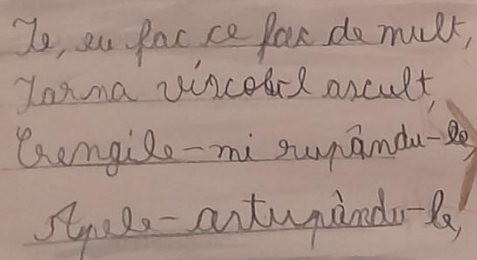 Ie, eu fac ce fac de mult,
Iarna viscolul ascult,
Crengile-mi rupându-le,
Apele-astupându-le,